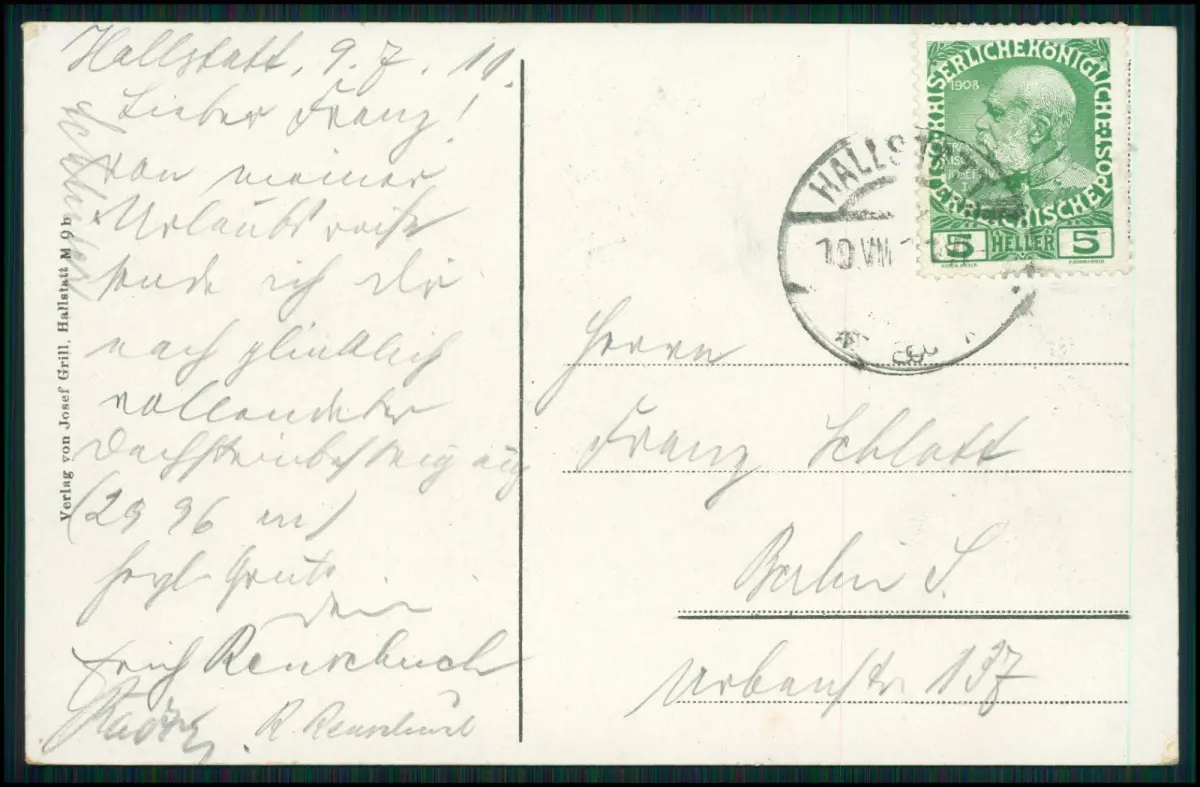 Hallstatt, 9.7.11.
Lieber Franz!
von meiner
Urlaubsreise
sende ich dir
nach glücklich
vollendeter
Dachsteinbesteigung
(2996 m)
herzl. Grüße
dein
Erich Rensebusch
R. Rensebusch
Verlag von Josef Grill, Hallstatt M 9 b
KAISERLICHEKÖNIGLICHE
ÖSTERREICHISCHE POST
1908
5 HELLER 5
HALLSTATT
10 VII
Herrn
Franz Schlatt
Berlin S.
Urbanstr. 137